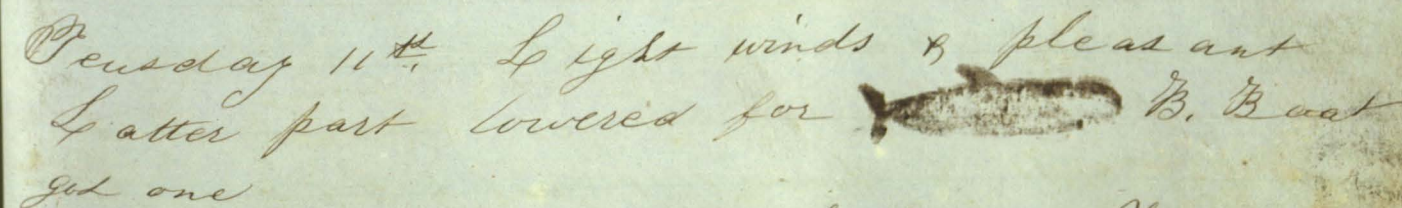 Teusday 11th. Light winds & pleasant
Latter part lowered for B. Boat
got one